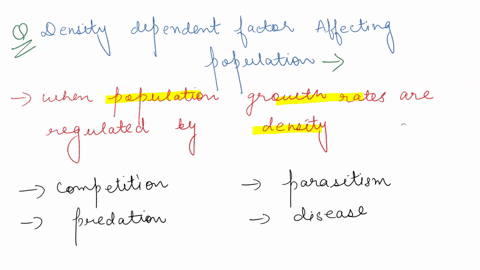 Q Density dependent factor Affecting
population →
→ when population growth rates are
regulated by density
→ competition → parasitism
→ predation → disease